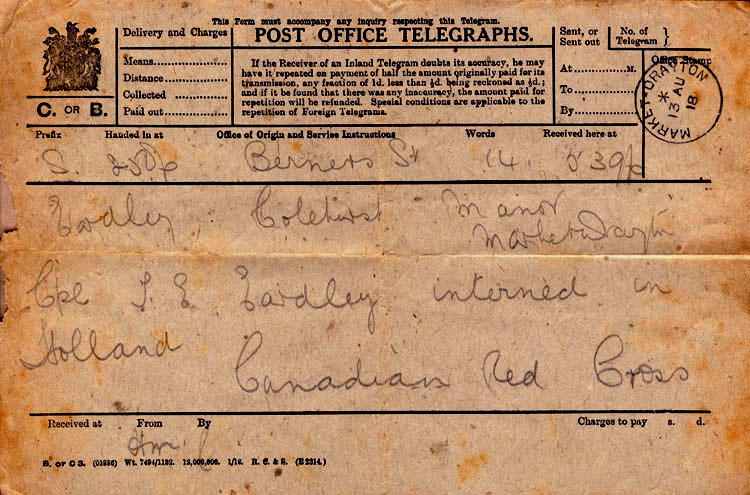 This Form must accompany any inquiry respecting this Telegram.
POST OFFICE TELEGRAPHS.
Delivery and Charges
Means
Distance
Collected
Paid out
C. OR B.
If the Receiver of an Inland Telegram doubts its accuracy, he may
have it repeated on payment of half the amount originally paid for its
transmission, any fraction of 1d. less than ½d. being reckoned as ½d.;
and if it be found that there was any inaccuracy, the amount paid for
repetition will be refunded. Special conditions are applicable to the
repetition of Foreign Telegrams.
Sent, or
Sent out
At M.
To
By
No. of
Telegram
Office Stamp
MARKET-DRAYTON
13 AU
18
Prefix Handed in at Office of Origin and Service Instructions Words Received here at
S. Berners St 14
Eardley Colehurst Manor
Market Drayton
Cpl J. E. Eardley interned in
Holland
Canadian Red Cross
Received at From By Charges to pay s. d.
B. or C 3. (01836) Wt. 7494/1132. 12,000,000. 1/18. R. C. & S. (E 2214.)